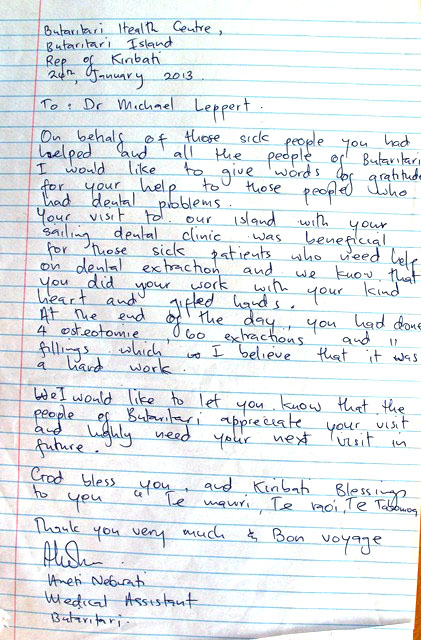 Butaritari Health Centre,
Butaritari Island
Rep of Kiribati
24th, January 2013.
To: Dr Michael Leppert.
On behalf of those sick people you had
helped and all the people of Butaritari
I would like to give words of gratitude
for your help to those people who
had dental problems.
Your visit to our island with your
sailing dental clinic was beneficial
for those sick patients who need help
on dental extraction and we know that
you did your work with your kind
heart and gifted hands.
At the end of the day, you had done
4 osteotomie, 60 extractions and 11
fillings which I believe that it was
a hard work.
We I would like to let you know that the
people of Butaritari appreciate your visit
and highly need your next visit in
future.
God bless you and Kiribati Blessings
to you " Te mauri, Te raoi, Te Tabomoa
Thank you very much & Bon voyage
Aneti Neburati
Medical Assistant
Butaritari.